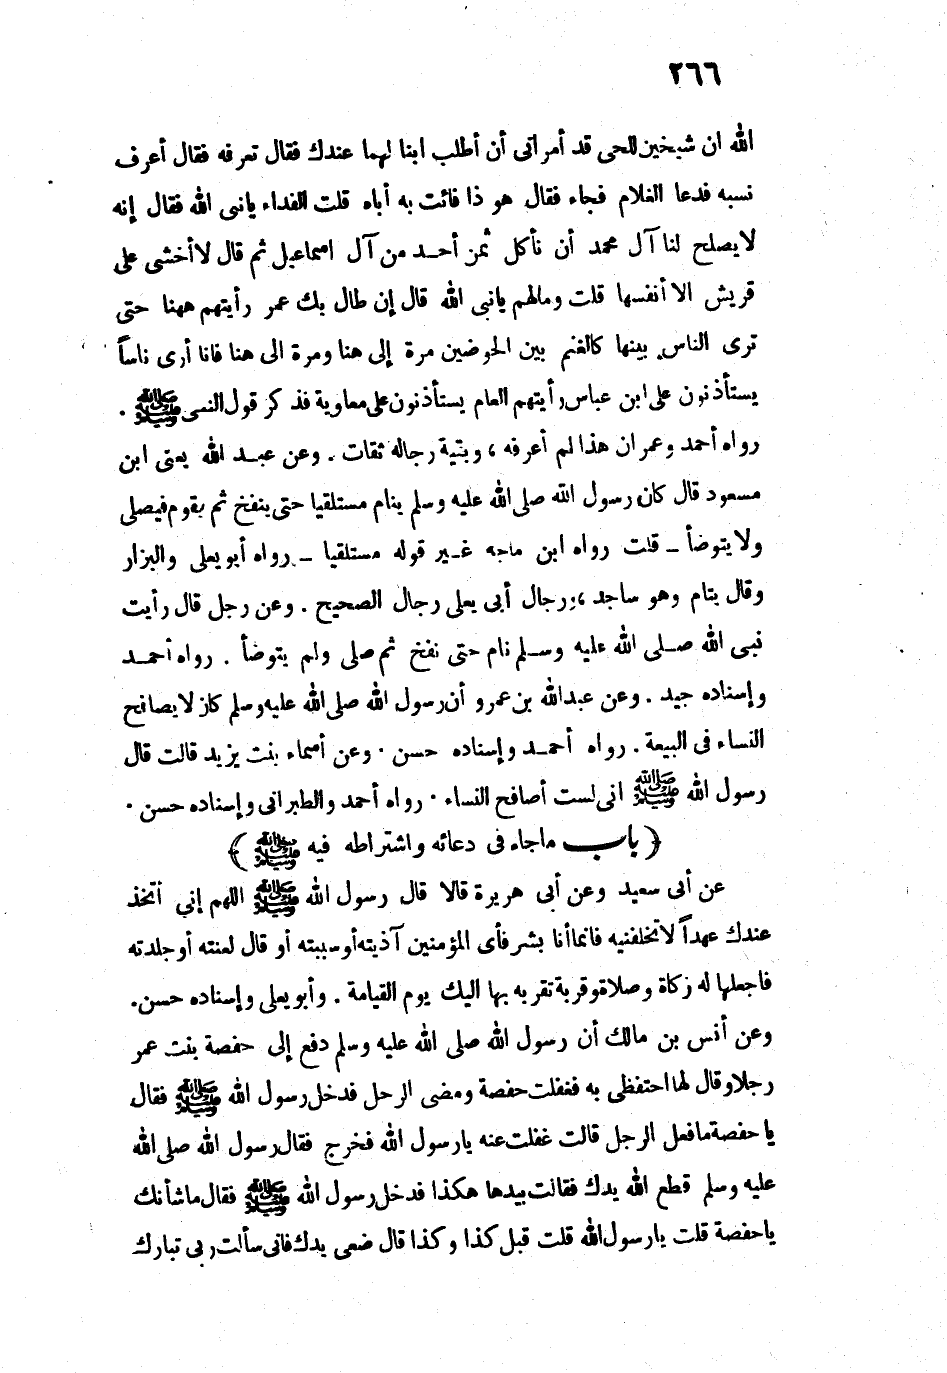 ٢٦٦
الله ان شيخين للحى قد أمراتى أن أطلب ابنا لهما عندك فقال تعرفه فقال أعرف
نسبه فدعا الغلام فجاء فقال هو ذا فائت به أباه قلت الفداء يانبى الله فقال إنه
لا يصلح لنا آل محمد أن نأكل ثمن أحد من آل اسماعيل ثم قال لاأخشى على
قريش الا أنفسها قلت ومالهم يانبى الله قال إن طال بك عمر رأيتهم ههنا حتى
ترى الناس بينها كالغنم بين الحوضين مرة إلى هنا ومرة الى هنا فانا أرى ناساً
يستأذنون على ابن عباس رأيتهم العام يستأذنون على معاوية فذكر قول النبى ﷺ .
رواه أحمد وعمران هذا لم أعرفه ، وبقية رجاله ثقات . وعن عبد الله يعنى ابن
مسعود قال كان رسول الله صلى الله عليه وسلم ينام مستلقيا حتى ينفخ ثم يقوم فيصلى
ولا يتوضأ ــ قلت رواه ابن ماجه غير قوله مستلقيا ــ رواه أبو يعلى والبزار
وقال ينام وهو ساجد ، ورجال أبى يعلى رجال الصحيح . وعن رجل قال رأيت
نبى الله صلى الله عليه وسلم نام حتى نفخ ثم صلى ولم يتوضأ . رواه أحمد
وإسناده جيد . وعن عبدالله بن عمرو أن رسول الله صلى الله عليه وسلم كان لا يصافح
النساء فى البيعة . رواه أحمد وإسناده حسن . وعن أسماء بنت يزيد قالت قال
رسول الله ﷺ انى لست أصافح النساء . رواه أحمد والطبرانى وإسناده حسن .
﴿ باب ماجاء فى دعائه واشتراطه فيه ﷺ ﴾
عن أبى سعيد وعن أبى هريرة قالا قال رسول الله ﷺ اللهم إني أتخذ
عندك عهداً لاتخلفنيه فانما أنا بشر فأى المؤمنين آذيته أوسببته أو قال لعنته أو جلدته
فاجعلها له زكاة وصلاة وقربة تقربه بها اليك يوم القيامة . وأبو يعلى وإسناده حسن.
وعن أنس بن مالك أن رسول الله صلى الله عليه وسلم دفع إلى حفصة بنت عمر
رجلا وقال لها احتفظى به فغفلت حفصة ومضى الرجل فدخل رسول الله ﷺ فقال
يا حفصة مافعل الرجل قالت غفلت عنه يارسول الله فخرج فقال رسول الله صلى الله
عليه وسلم قطع الله يدك فقالت بيدها هكذا فدخل رسول الله ﷺ فقال ماشأنك
ياحفصة قلت يارسول الله قلت قبل كذا وكذا قال ضعى يدك فانى سألت ربى تبارك